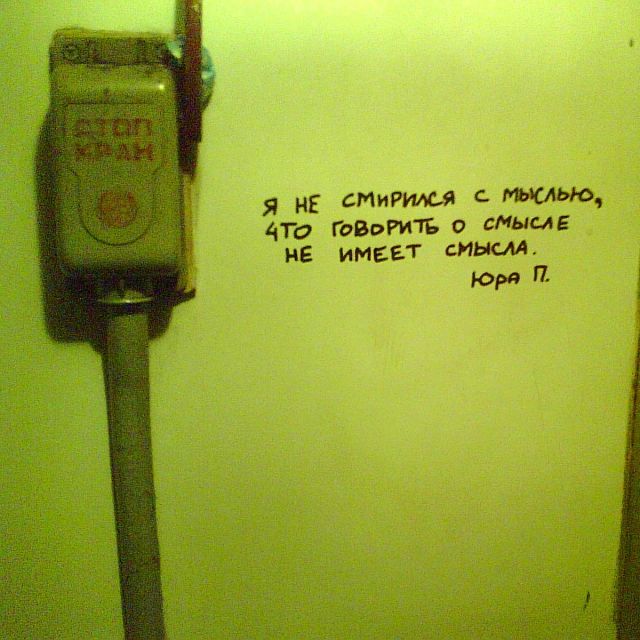 СТОП
КРАН
Я НЕ СМИРИЛСЯ С МЫСЛЬЮ,
ЧТО ГОВОРИТЬ О СМЫСЛЕ
НЕ ИМЕЕТ СМЫСЛА.
Юра П.